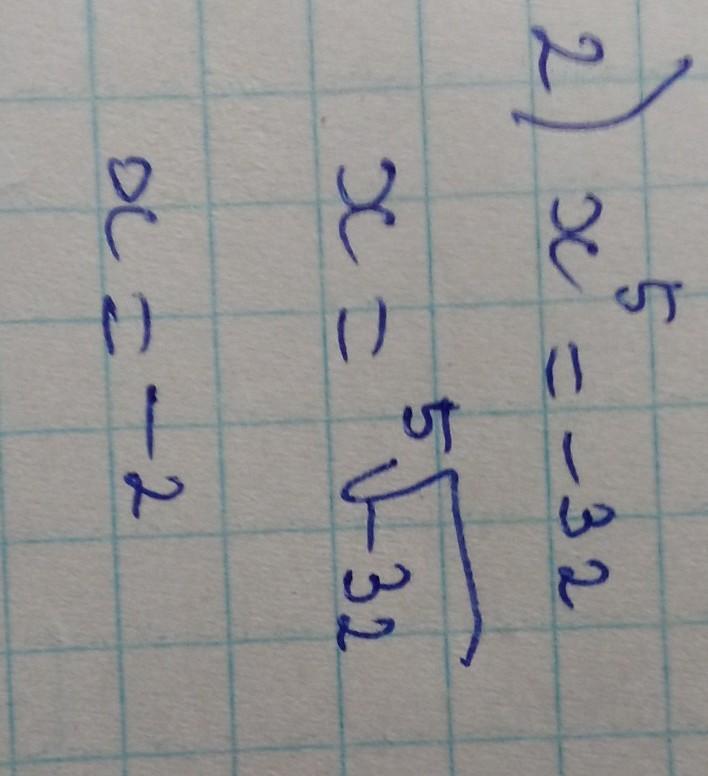 2) x⁵ = -32
x = ⁵√-32
x = -2